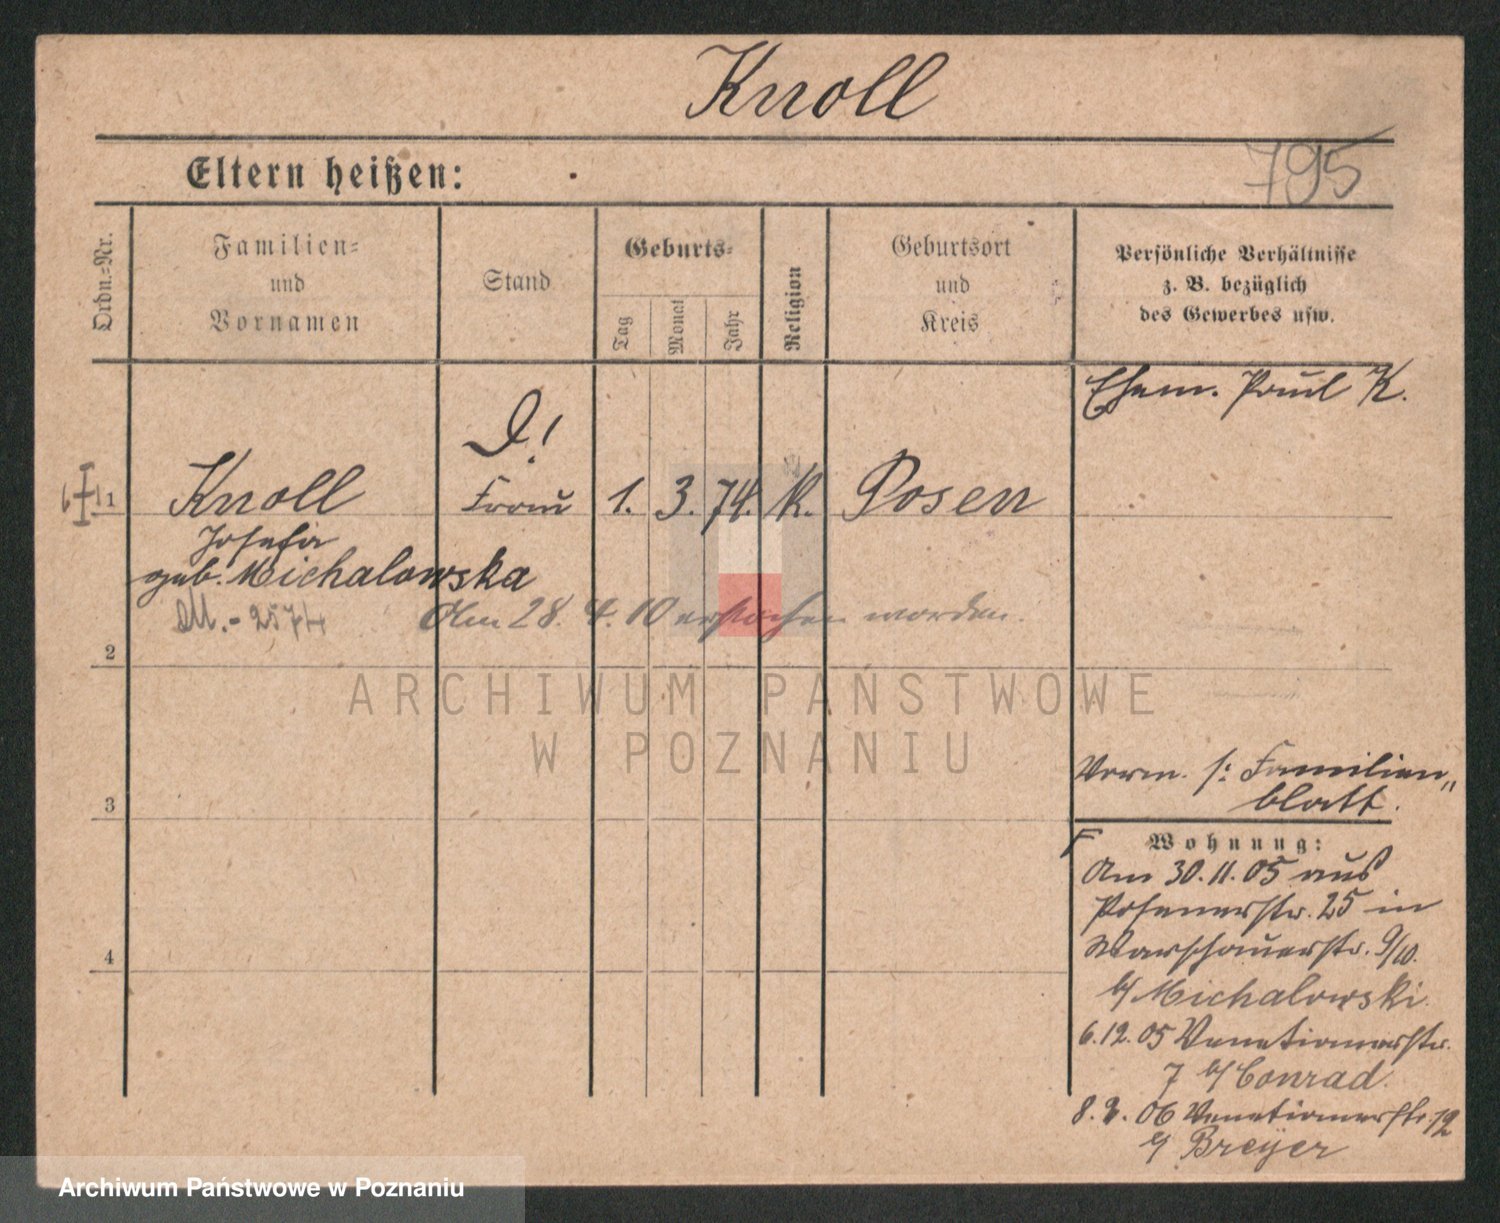 Knoll
Eltern heißen:
795
Ordn.=Nr.
Familien=
und
Vornamen
Stand
Geburts=
Tag
Monat
Jahr
Religion
Geburtsort
und
Kreis
Persönliche Verhältnisse
z. B. bezüglich
des Gewerbes usw.
Ehem. Paul K.
D!
1
Knoll
Frau
1. 3. 74. K. Posen
Josefa
geb. Michalowska
M. - 2574
Am 28. 4. 10 erstochen worden.
2
ARCHIWUM PAŃSTWOWE
W POZNANIU
Verm. s: Familien„
blatt.
3
F Wohnung:
Am 30.11.05 aus
Posenerstr. 25 in
Warschauerstr. 9/10.
4
b/ Michalowski.
6.12.05 Venetianerstr.
7 b/ Conrad.
06 Venetianerstr. 12
b/ Breyer
Archiwum Państwowe w Poznaniu